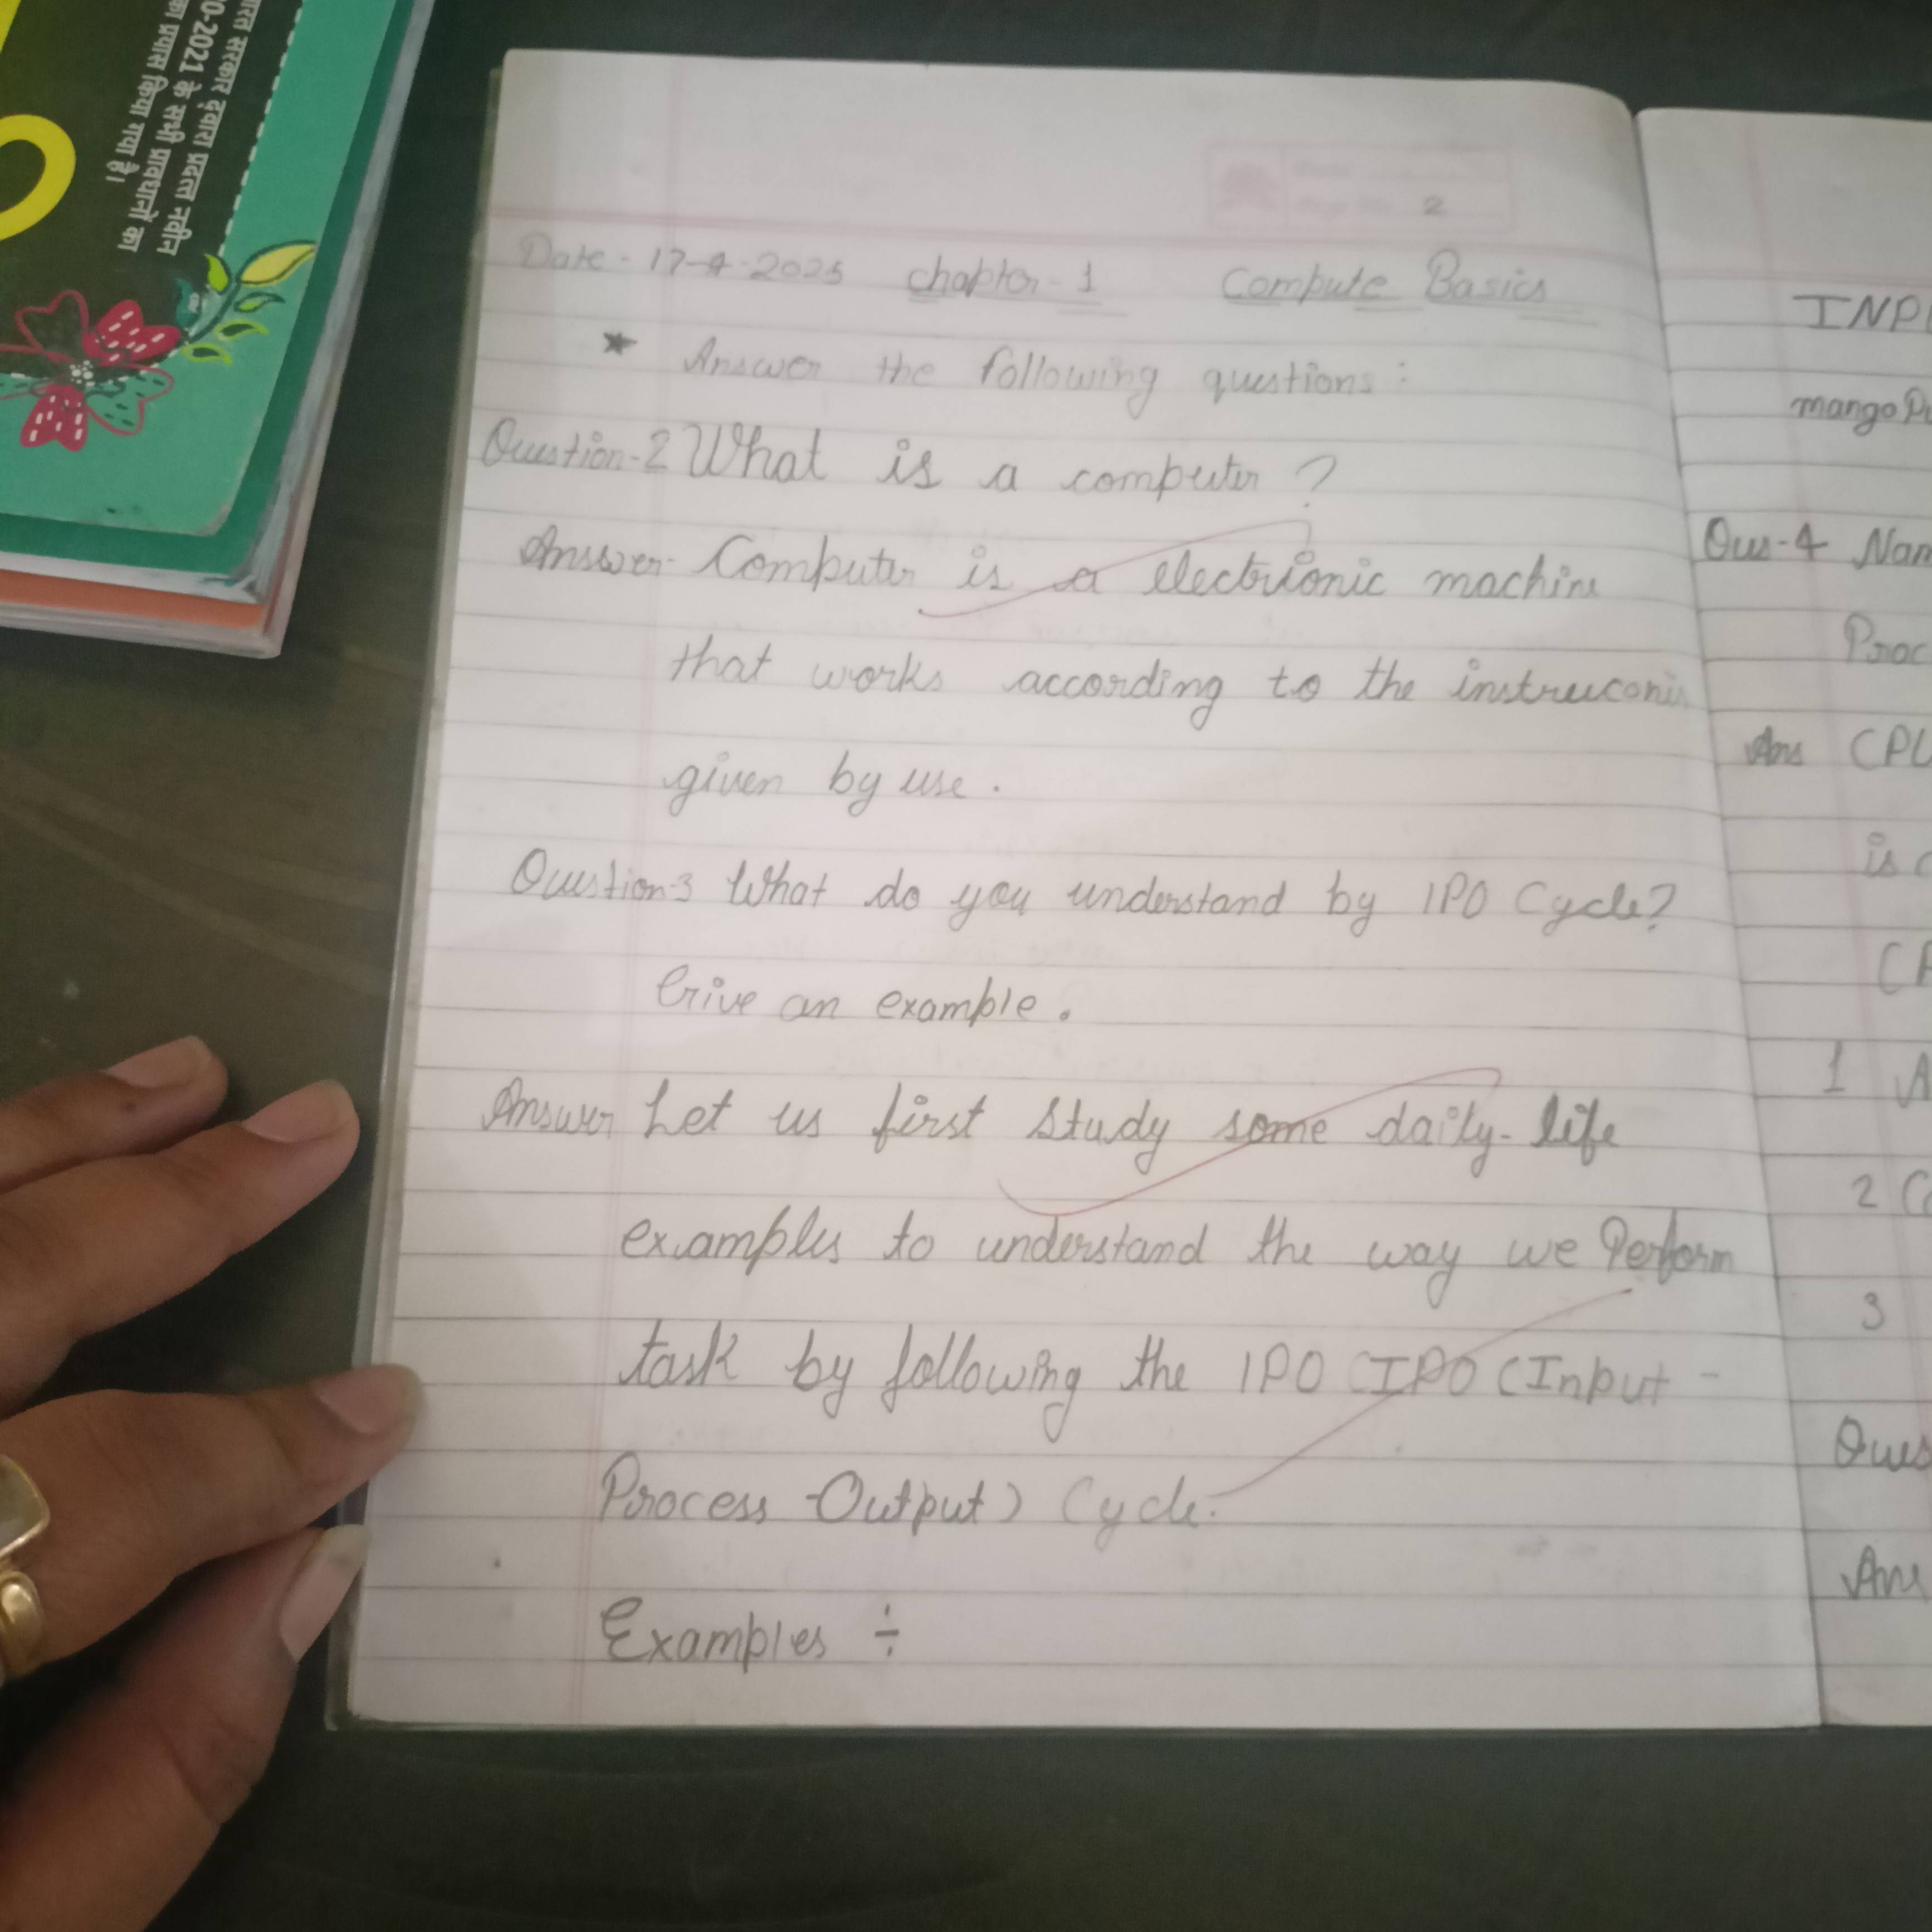 ारत सरकार द्वारा प्रदत्त नवीन
0-2021 के सभी प्रावधानों का
का प्रयास किया गया है।
2
Date - 17-4-2025 chapter - 1 Compute Basics
★ Answer the following questions :
Question-2 What is a computer ?
Answer- Computer is a electrionic machine
that works according to the instruconis
given by use .
Question-3 What do you understand by IPO Cycle?
Give an example .
Answer Let us first study some daily-life
examples to understand the way we Perform
task by following the IPO (IPO (Input -
Process -Output) Cycle.
Examples ÷
INP
mango Pu
Qus-4 Nam
Proc
Ans CPU
is c
CP
1 A
2 C
3
Ques
Ans